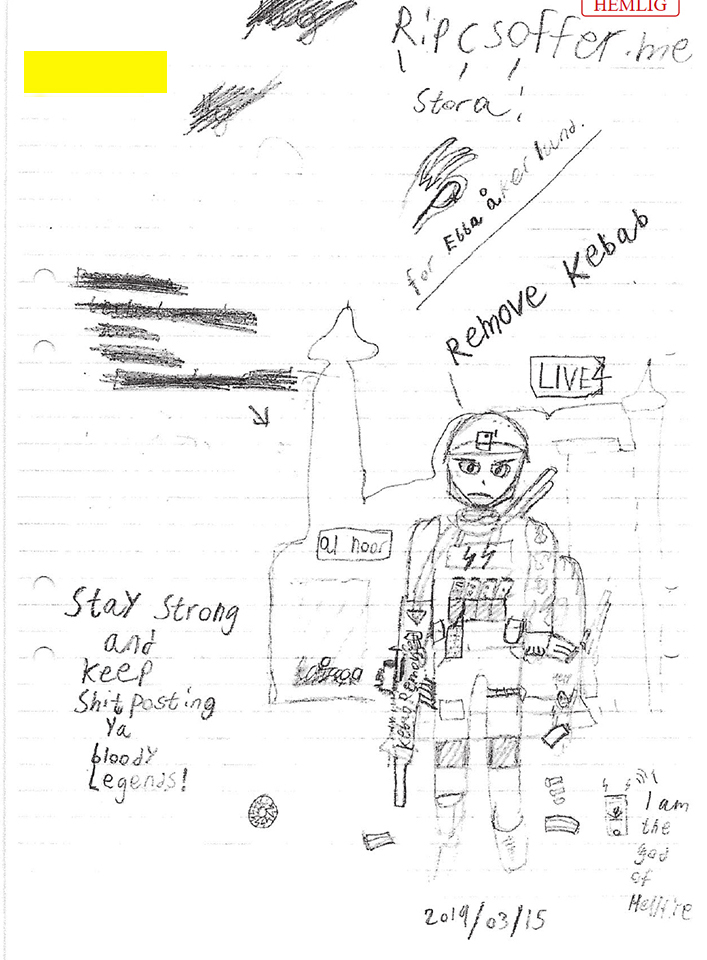 HEMLIG
Ripcsoffer.me
Stora!
for Ebba åkerlund.
Remove Kebab
LIVE
al noor
Stay Strong
and
Keep
Shitposting
Ya
bloody
Legends!
Kebab Remover
I am
the
god
of
Hellfire
2019/03/15